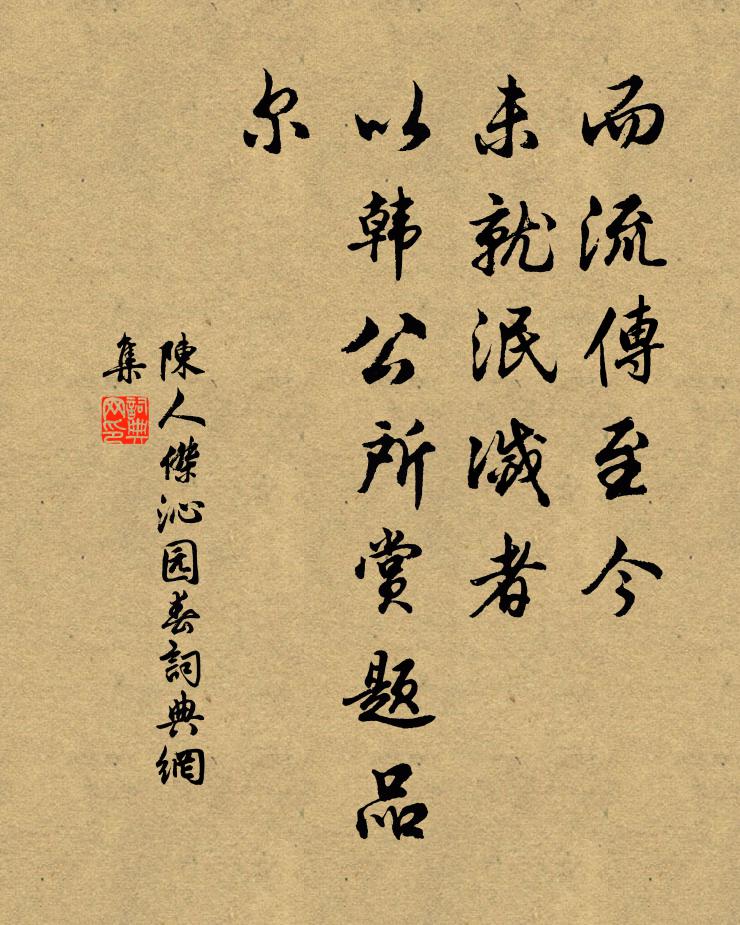 而流傳至今
未就泯滅者
以韩公所赏题品
尔
陳人傑沁园春詞典網
集
詞典网印